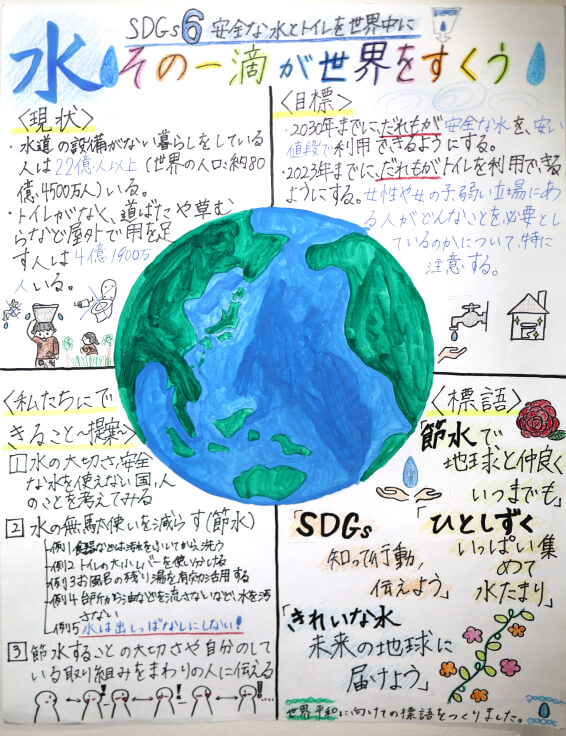 SDGs6 安全な水とトイレを世界中に
水 その一滴が世界をすくう
〈現状〉
・水道の設備がない暮らしをしている
人は22億人以上(世界の人口:約80
億4500万人)いる。
・トイレがなく、道ばたや草む
らなど屋外で用を足
す人は4億1900万
人いる。
〈目標〉
・2030年までに、だれもが安全な水を、安い
値段で利用できるようにする。
・2023年までに、だれもがトイレを利用できる
ようにする。女性や女の子弱い立場にあ
る人がどんなことを必要とし
ているのかについて、特に
注意する。
〈私たちにで
きること~提案~〉
1 水の大切さ、安全
な水を使えない国、人
のことを考えてみる
2 水の無駄使いを減らす(節水)
例1 食器などは汚れをふいてから洗う
例2 トイレの大小レバーを使い分ける
例3 お風呂の残り湯を有効活用する
例4 台所から油などを流さないなど、水を汚
さない
例5 水は出しっぱなしにしない!
3 節水することの大切さや自分のして
いる取り組みをまわりの人に伝える
〈標語〉
「節水で
地球と仲良く
いつまでも」
「SDGs
知って行動,
伝えよう」
「ひとしずく
いっぱい集
めて
水たまり」
「きれいな水
未来の地球に
届けよう」
世界平和に向けての標語をつくりました。